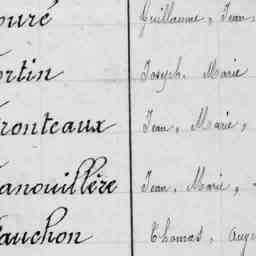 ouré Guillaume, Jean,
ortin Joseph, Marie
ronteaux Jean, Marie,
anouillère Jean, Marie,
auchon Thomas, Augu